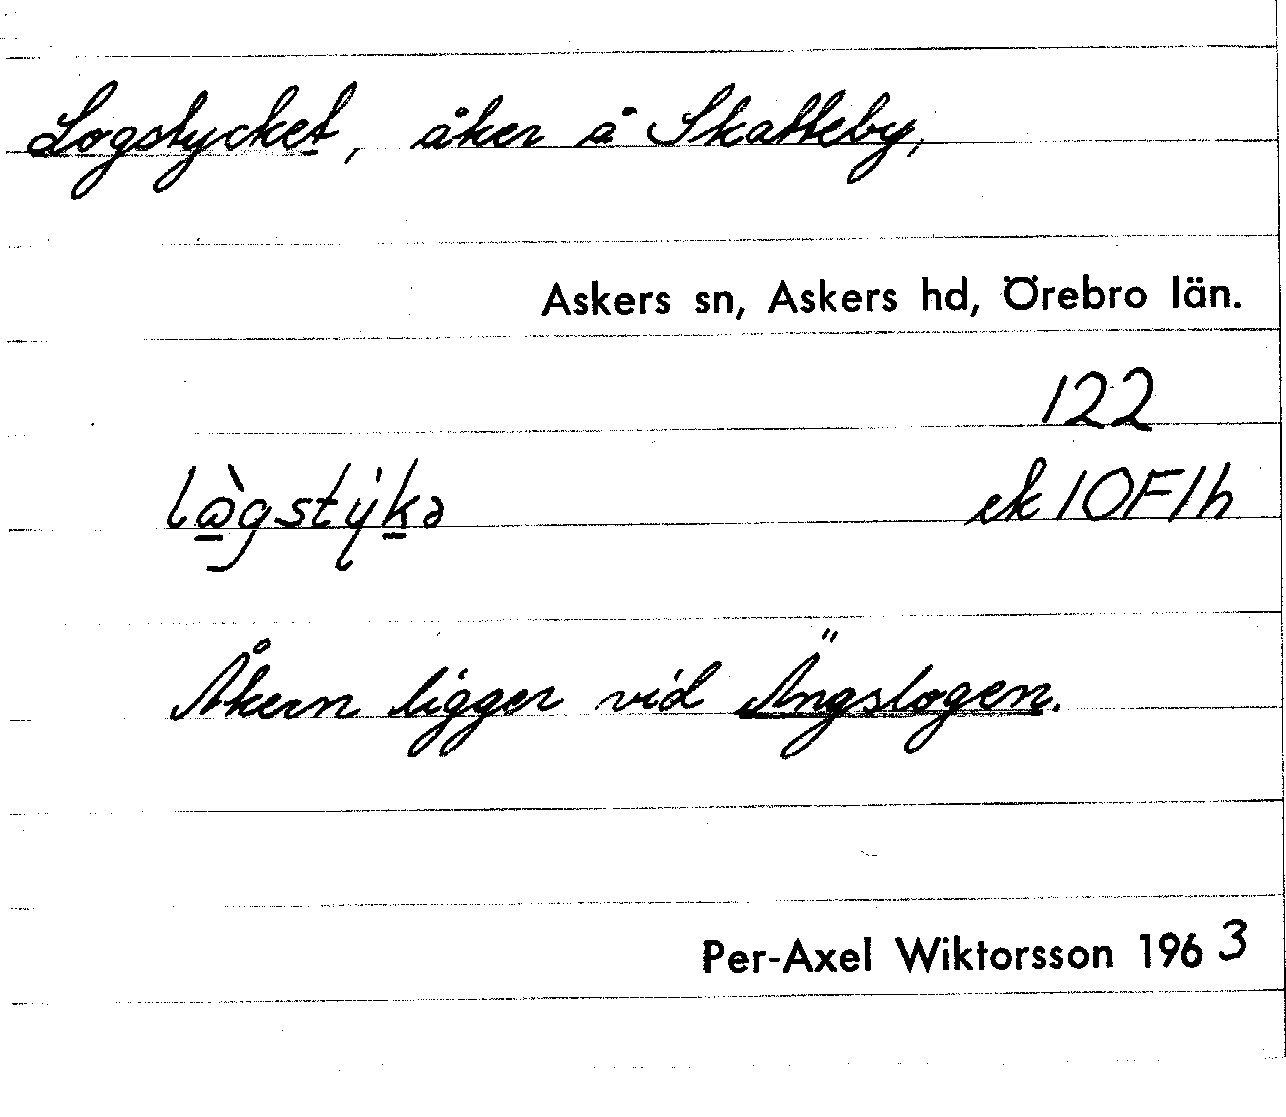 Logstycket, åker å Skatteby,
Askers sn, Askers hd, Örebro län.
122
lågstýkə ek 10F1h
Åkern ligger vid Ängslogen.
Per-Axel Wiktorsson 1963